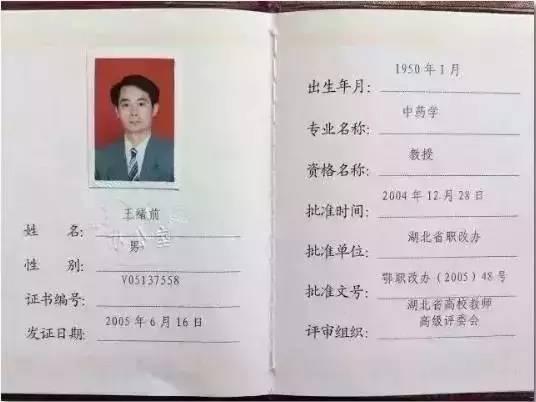 姓 名: 王绪前
性 别: 男
证书编号: V05137558
发证日期: 2005年6月16日
出生年月: 1950年1月
专业名称: 中药学
资格名称: 教授
批准时间: 2004年12月28日
批准单位: 湖北省职改办
批准文号: 鄂职改办(2005)48号
评审组织: 湖北省高校教师
高级评委会